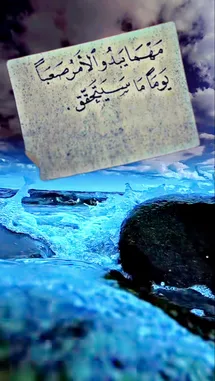 مَهْمَا يَبدُو الأَمْرُ صَعْبَاً
يَومَاً مَا سَيَتَحَقَّقْ .